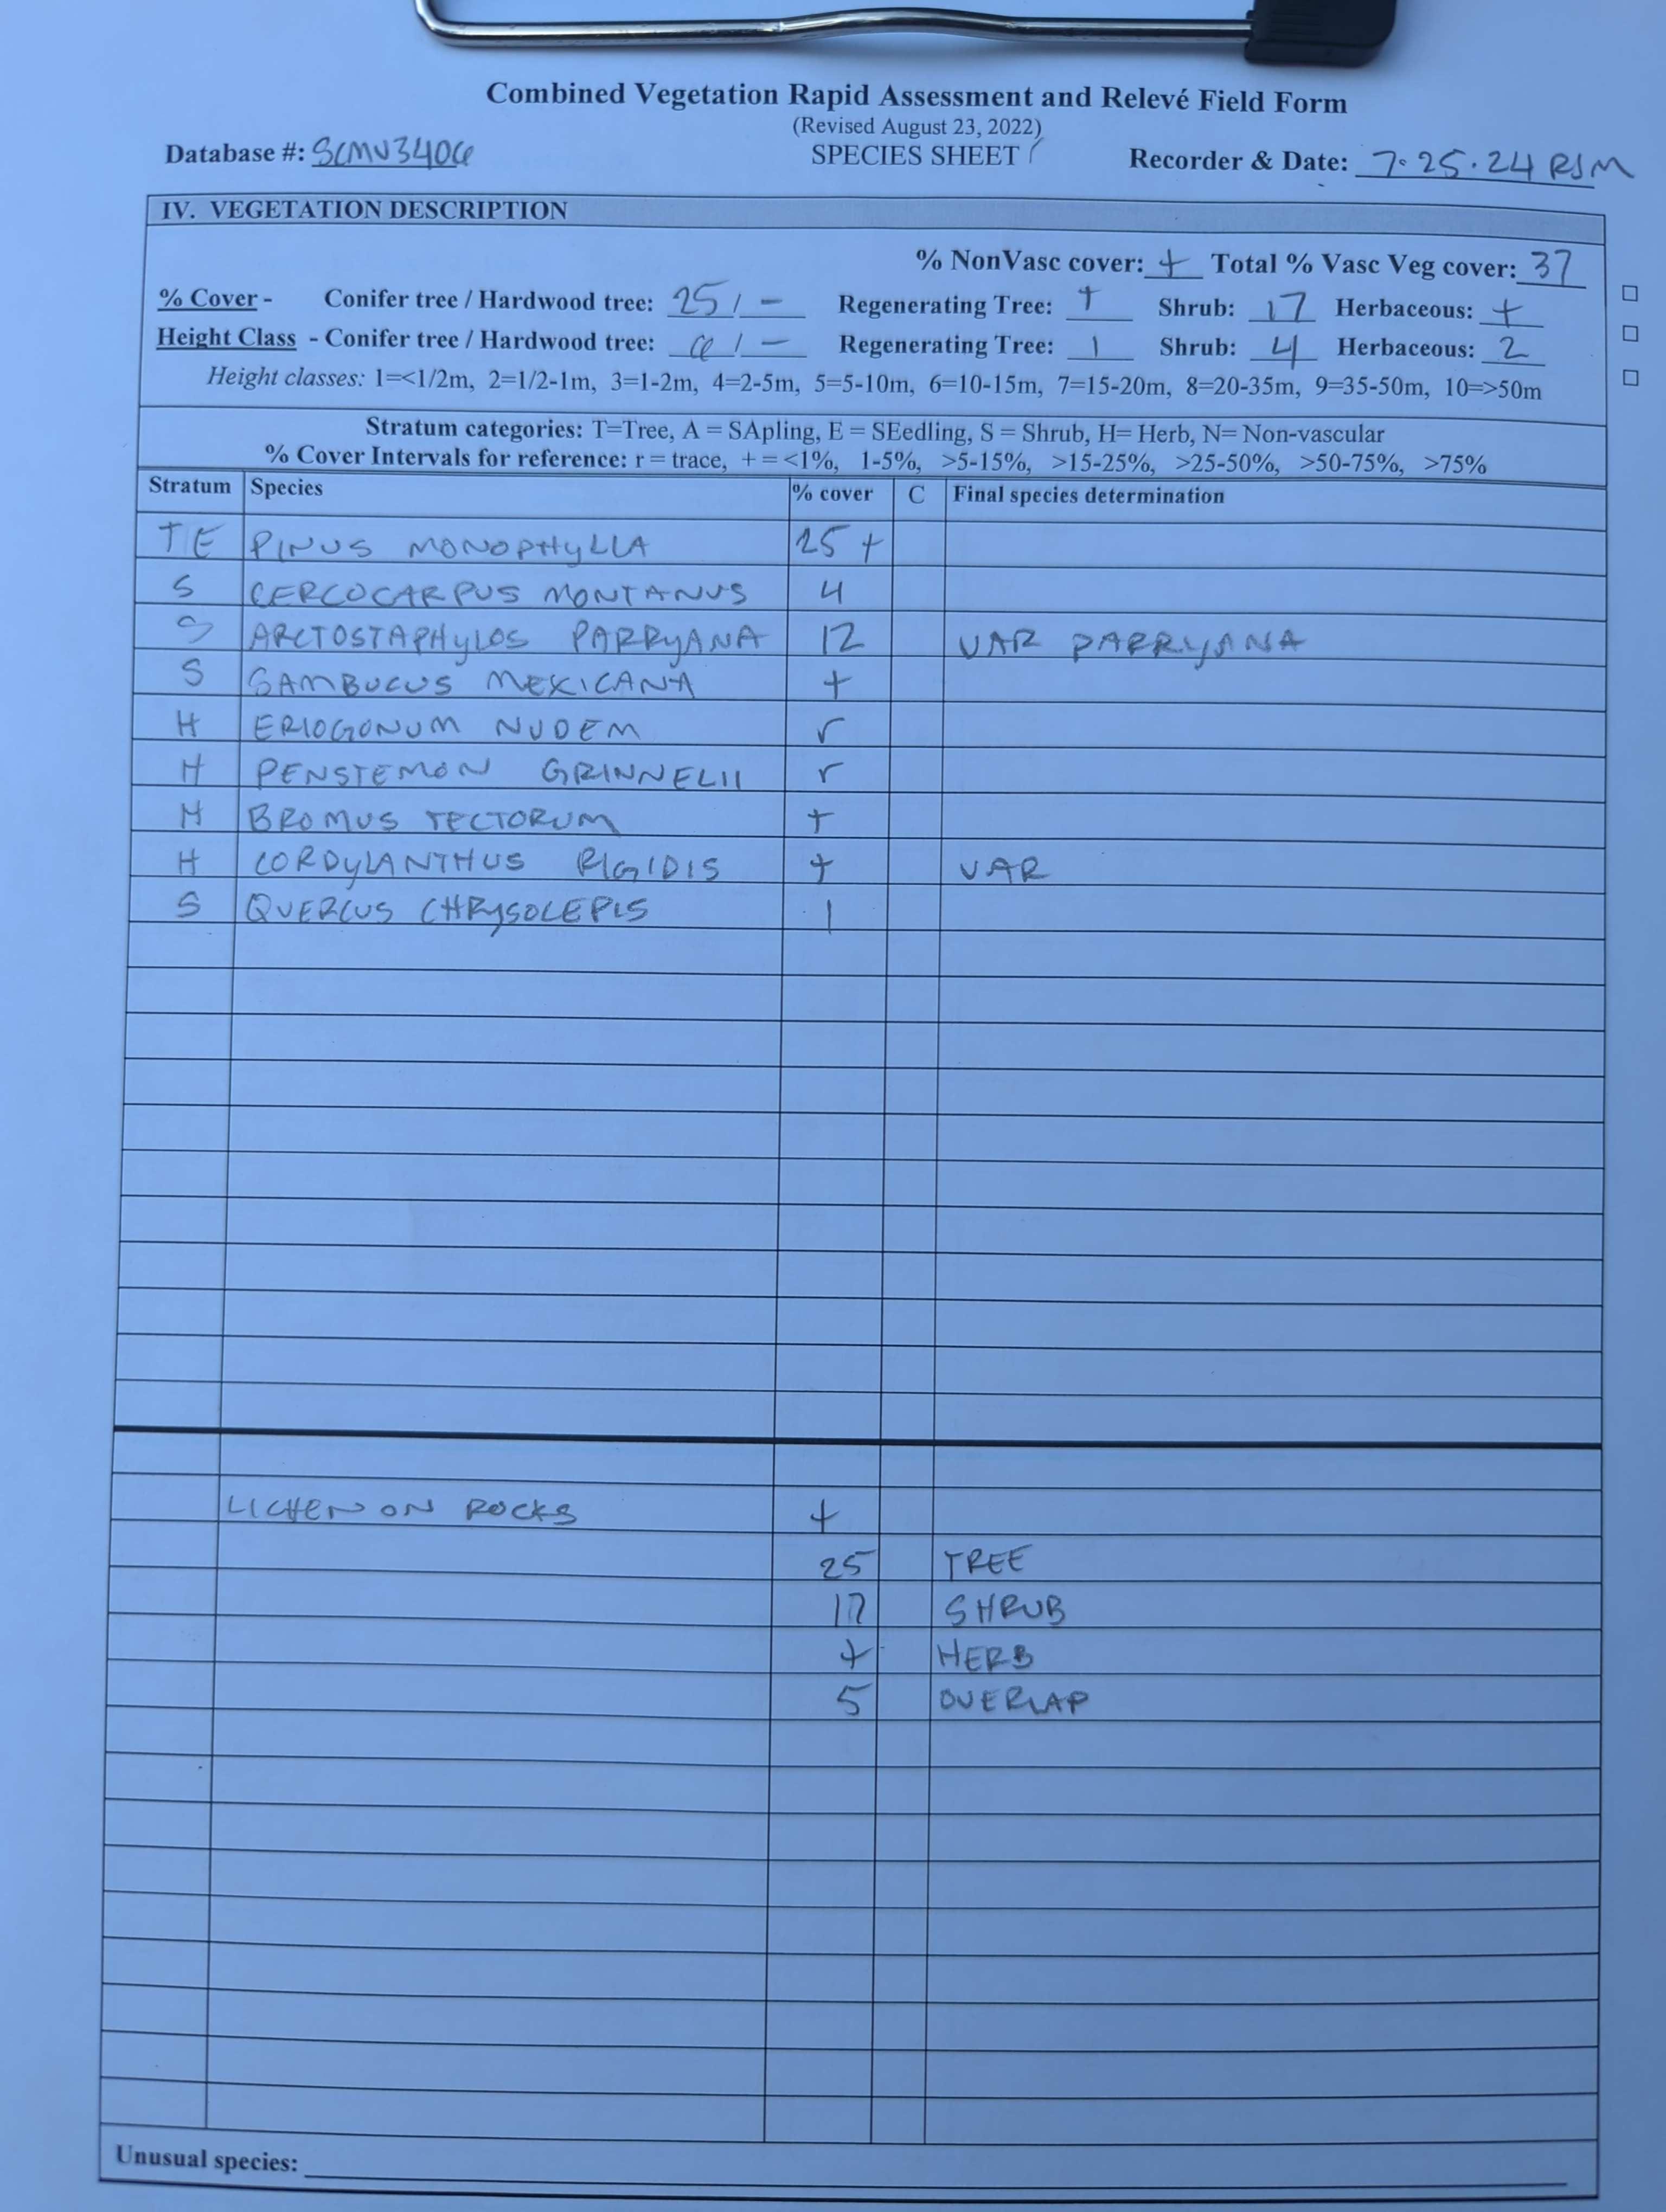 Combined Vegetation Rapid Assessment and Relevé Field Form
(Revised August 23, 2022)
Database #: SCMV3406 SPECIES SHEET Recorder & Date: 7.25.24 RJM
IV. VEGETATION DESCRIPTION
% NonVasc cover: + Total % Vasc Veg cover: 37
% Cover - Conifer tree / Hardwood tree: 25 / - Regenerating Tree: + Shrub: 17 Herbaceous: +
Height Class - Conifer tree / Hardwood tree: 6 / - Regenerating Tree: 1 Shrub: 4 Herbaceous: 2
Height classes: 1=<1/2m, 2=1/2-1m, 3=1-2m, 4=2-5m, 5=5-10m, 6=10-15m, 7=15-20m, 8=20-35m, 9=35-50m, 10=>50m
Stratum categories: T=Tree, A = SApling, E = SEedling, S = Shrub, H= Herb, N= Non-vascular
% Cover Intervals for reference: r = trace, + = <1%, 1-5%, >5-15%, >15-25%, >25-50%, >50-75%, >75%
Stratum Species % cover C Final species determination
T E PINUS MONOPHYLLA 25 +
S CERCOCARPUS MONTANUS 4
S ARCTOSTAPHYLOS PARRYANA 12 VAR PARRYANA
S SAMBUCUS MEXICANA +
H ERIOGONUM NUDEM r
H PENSTEMON GRINNELII r
H BROMUS TECTORUM +
H CORDYLANTHUS RIGIDIS + VAR
S QUERCUS CHRYSOLEPIS 1
LICHEN ON ROCKS +
25 TREE
17 SHRUB
+ HERB
5 OVERLAP
Unusual species: